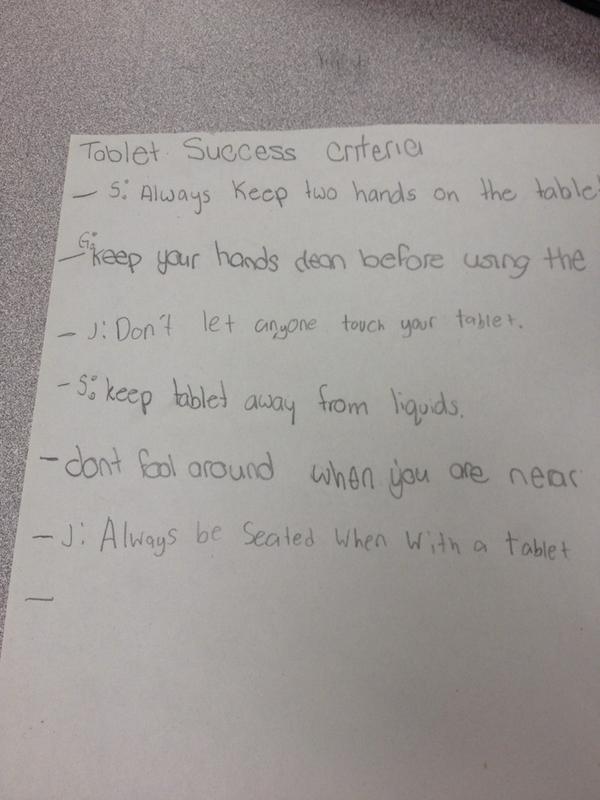 Tablet Success Criteria
- S: Always Keep two hands on the tablet
- G: keep your hands clean before using the
- J: Don't let anyone touch your tablet.
- S: keep tablet away from liquids.
- dont fool around when you are near
- J: Always be Seated When With a tablet
-